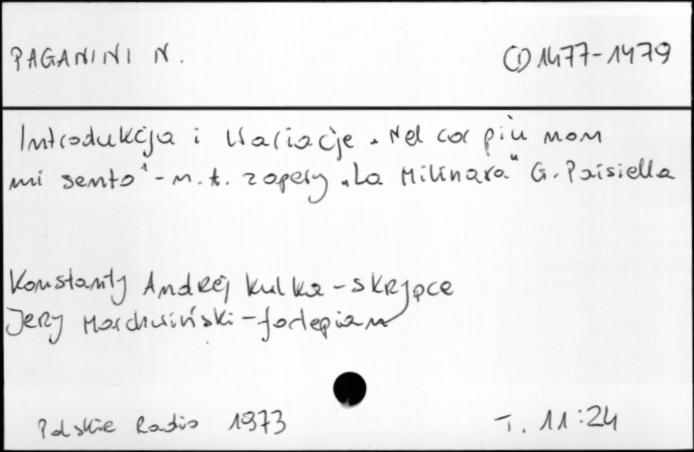 PAGANINI N. CD 1477-1479
Introdukcja i Wariacje „Nel cor piu non
mi sento" - n.t. z opery „La Milinara" G. Paisiella
Konstanty Andrzej Kulka - skrzypce
Jerzy Marchwiński - fortepian
Polskie Radio 1973 T. 11:24